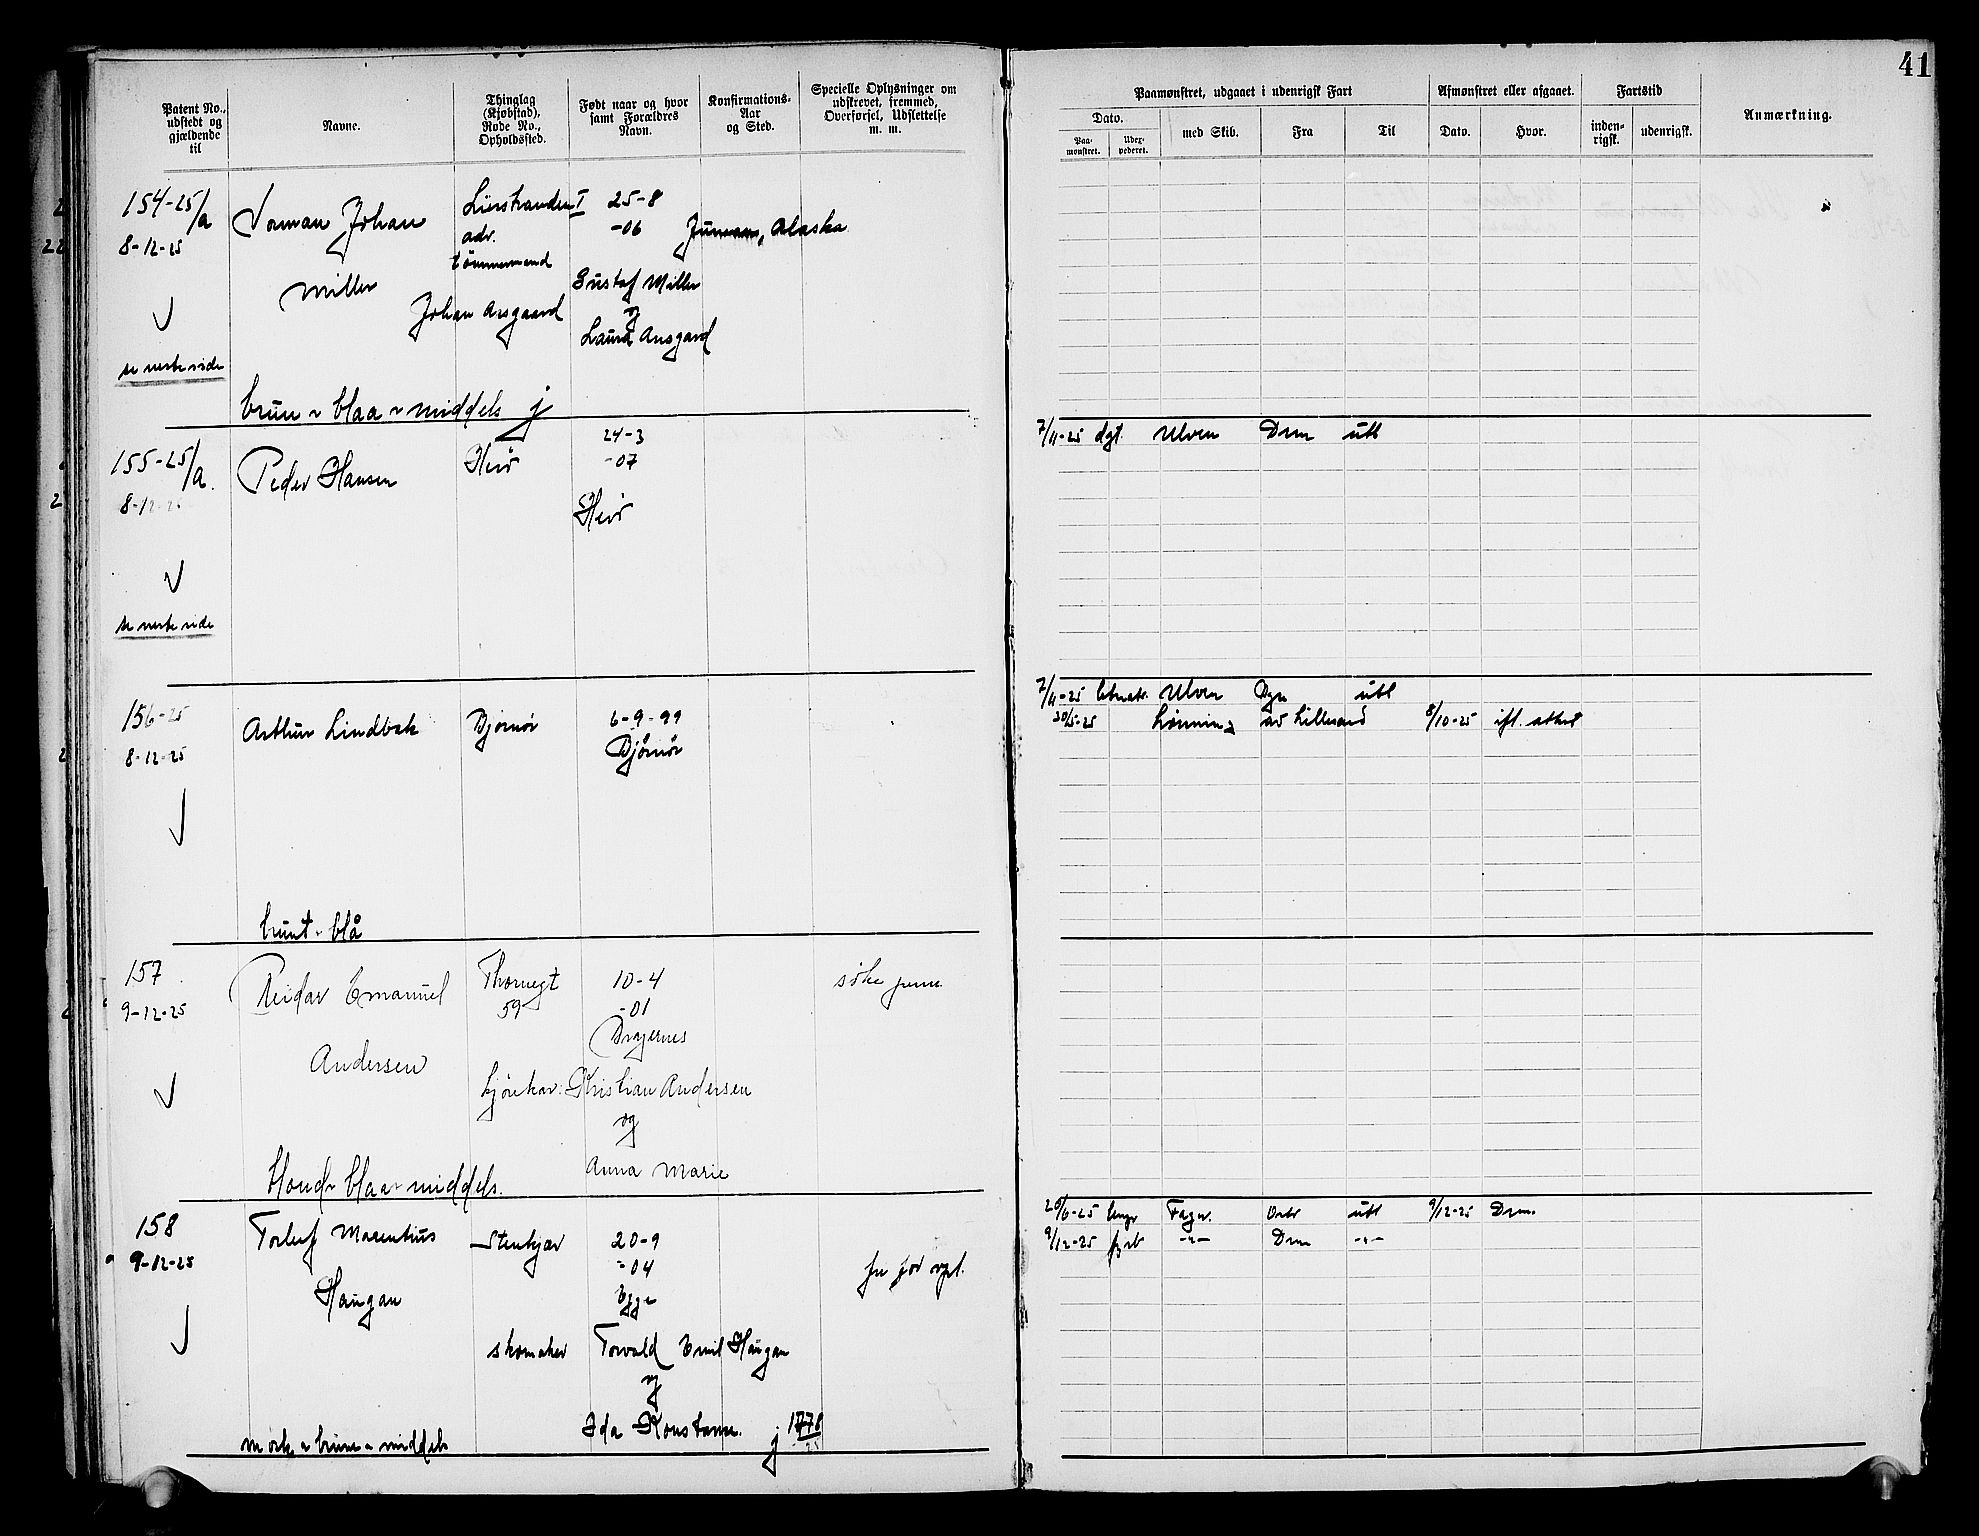 41
Patent No., udstedt og gjældende til
Navne.
Thinglag (Kjøbstad), Rode No., Opholdssted.
Født naar og hvor samt Forældres Navn.
Konfirmations-Aar og Sted.
Specielle Oplysninger om udskrevet, fremmed, Overførsel, Udslettelse m. m.
Paamønstret, udgaaet i udenrigsk Fart
Dato.
Paa-mønstret.
med Skib.
Fra
Til
Afmønstret eller afgaaet.
Dato.
Hvor.
Fartstid
inden-rigsk.
udenrigsk.
Anmærkning.
154-25/a
8-12-25
Norman Johan
Miller
Lierstranden I
adr.
tømmermand
Johan Aasgaard
25-8
-06
Alaska
Gustaf Miller
og
Laura Aasgard
se neste side
brun - blaa - middels j
155-25/a.
8-12-25
Peder Hansen
24-3
-07
se neste side
7/11-25 dgt. Ulven Drm utl
156-25
8-12-25
Arthur Lindbak
Bjørnør
6-9-99
Bjørnør
brunt - blå
7/11-25 Ulven utl
30/5-25 av Lillesand 8/10-25
157
9-12-25
Reidar Emanuel
Andersen
59
10-4
-01
Bragernes
kjørekar:
Kristian Andersen
og
Anna Marie
blond - blaa - middels.
158
9-12-25
Torleif Marentius
Haugan
Stenkjær
skomaker
20-9
-04
Egge
Torvald Emil Haugan
og
Ida Konstanse.
j 1778
25
mørk - brune - middels
20/6-25 Fager. utl 9/12-25 Drm.
9/12-25 fyrb -"- Drm -"-